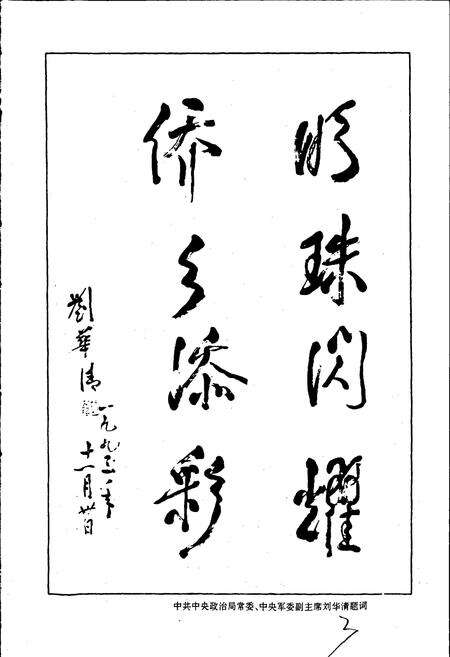 明珠闪耀
侨乡添彩
劉華清
一九九五年
十一月卅日
中共中央政治局常委、中央军委副主席刘华清题词
3